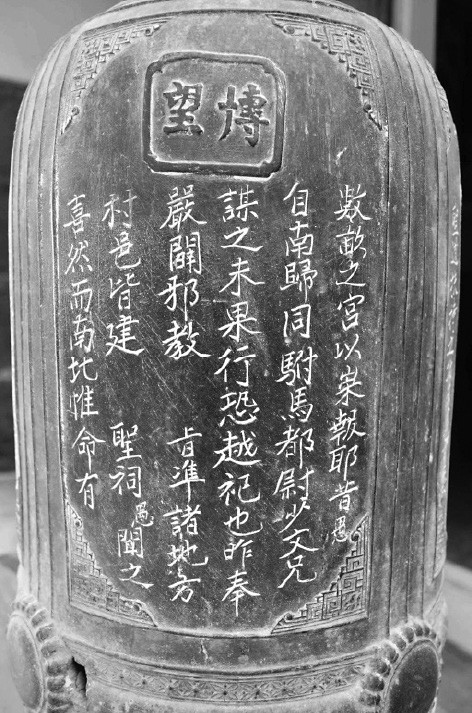 博望
數畝之宮以崇報耶昔愚
自南歸同駙馬都尉少文兄
謀之未果行恐越祀也昨奉
嚴闢邪教 旨準諸地方
村邑皆建 聖祠愚聞之
喜然而南北惟命有